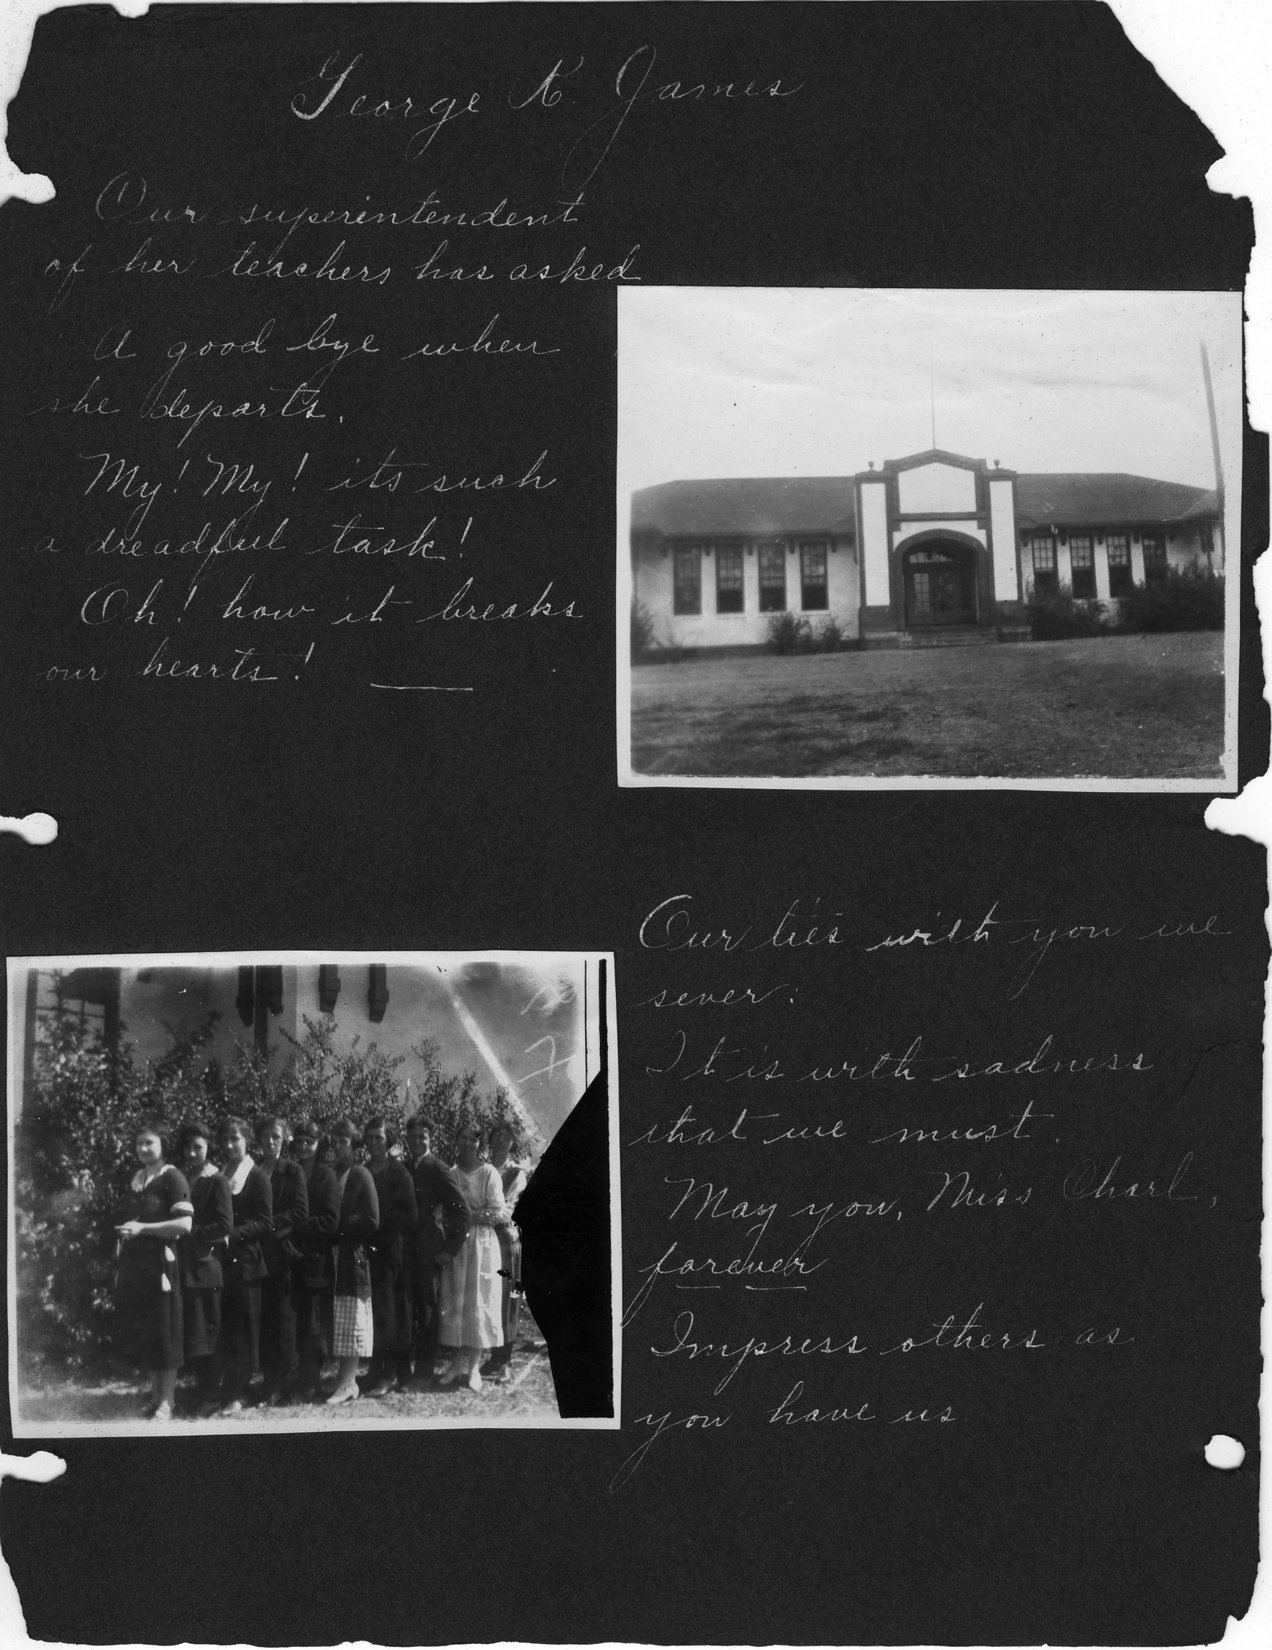 George K. James
Our superintendent
of her teachers has asked
A good bye when
she departs.
My! My! its such
a dreadful task!
Oh! how it breaks
our hearts!
Our ties with you we
sever:
It is with sadness
that we must.
May you, Miss Charl,
forever
Impress others as
you have us